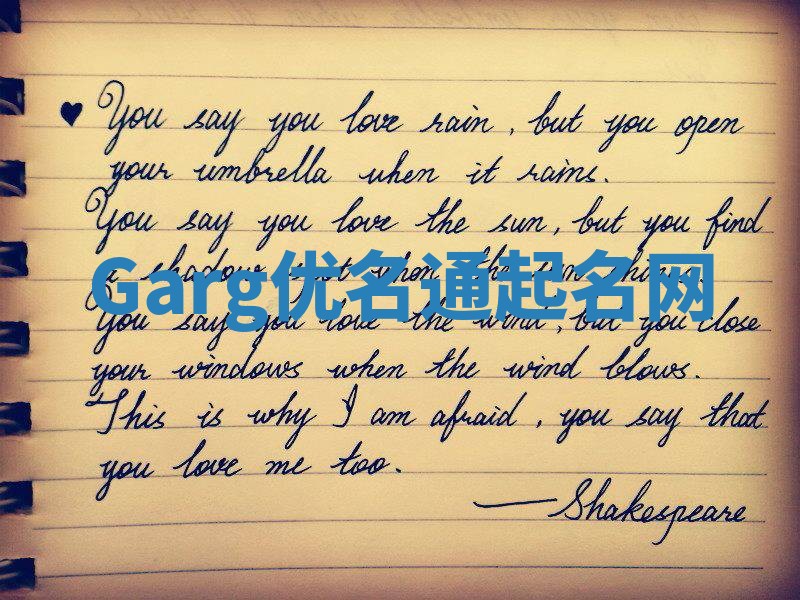 ♥ You say you love rain, but you open
your umbrella when it rains.
You say you love the sun, but you find
a shadow spot when the sun shines.
Garg优名通起名网
You say you love the wind, but you close
your windows when the wind blows.
This is why I am afraid, you say that
you love me too.
—Shakespeare